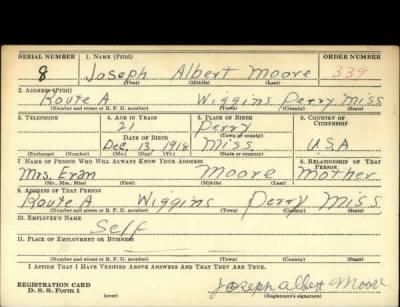 SERIAL NUMBER 1. NAME (Print) ORDER NUMBER
8 Joseph Albert Moore 339
(First) (Middle) (Last)
2. ADDRESS (Print)
Route A Wiggins Perry Miss
(Number and street or R. F. D. number) (Town) (County) (State)
3. TELEPHONE 4. AGE IN YEARS 5. PLACE OF BIRTH 6. COUNTRY OF CITIZENSHIP
21 Perry
DATE OF BIRTH (Town or county)
Dec. 13, 1918 Miss U.S.A
(Exchange) (Number) (Mo.) (Day) (Yr.) (State or country)
7. NAME OF PERSON WHO WILL ALWAYS KNOW YOUR ADDRESS 8. RELATIONSHIP OF THAT PERSON
Mrs. Eran Moore Mother
(Mr., Mrs., Miss) (First) (Middle) (Last)
9. ADDRESS OF THAT PERSON
Route A Wiggins Perry Miss
(Number and street or R. F. D. number) (Town) (County) (State)
10. EMPLOYER'S NAME
Self
11. PLACE OF EMPLOYMENT OR BUSINESS
(Number and street or R. F. D. number) (Town) (County) (State)
I AFFIRM THAT I HAVE VERIFIED ABOVE ANSWERS AND THAT THEY ARE TRUE.
REGISTRATION CARD
D. S. S. Form 1 (over) Joseph Albert Moore
(Registrant's signature)